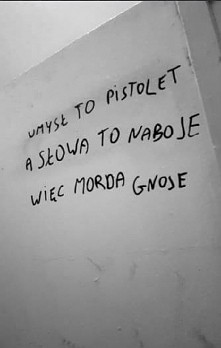 UMYSŁ TO PISTOLET
A SŁOWA TO NABOJE
WIĘC MORDA GNOJE